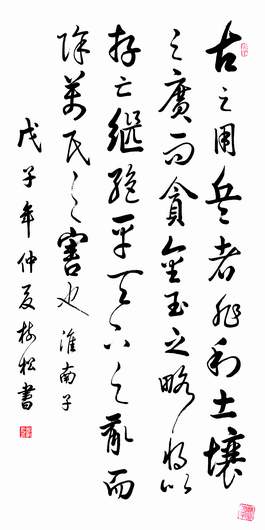 古之用兵者非利土壤
之廣而貪金玉之略将以
存亡继绝平天下之亂而
除萬民之害也 淮南子
戊子年仲夏 松書